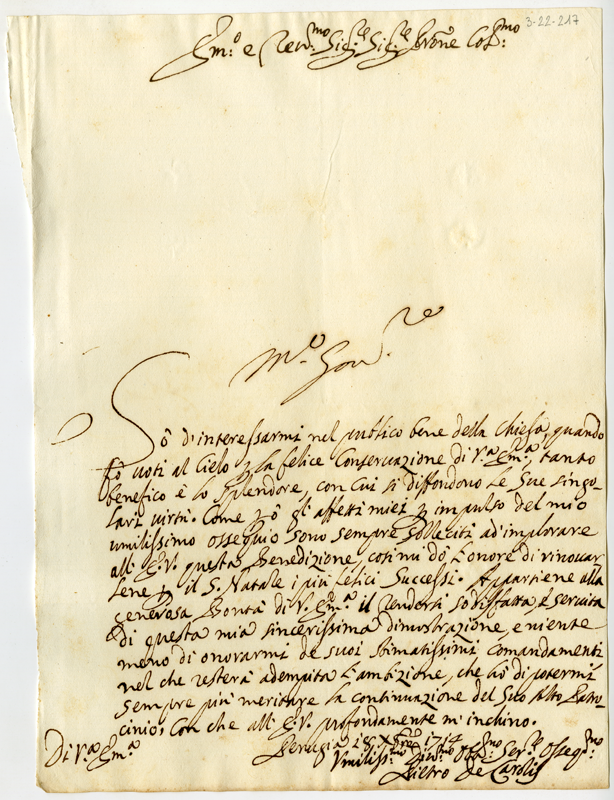 3-22-217
Em:o e Rev:mo Sig:re Sig:re Prone Col:mo
M:o Gov:re
Sò d'interessarmi nel publico bene della Chiesa, quando
fò voti al Cielo p la felice Conservazione di V:a Em:a, tanto
benefico è lo splendore, con cui si diffondono le Sue singo-
lari virtù. Come però gl'affetti miei p impulso del mio
umilissimo ossequio sono sempre solleciti ad'implorare
all'E:V. questa Benedizione, così mi dò l'onore di rinovar
Lene p il S. Natale i più Letici Successi. Appartiene alla
generosa Bontà di V: Em:a il rendersi sodisfatta e servita
di questa mia sincerissima dimostrazione, e niente
meno di onorarmi de suoi stimatissimi comandamenti
nel che resterà adempita l'ambizione, che hò di potermi
sempre più meritare la continuazione del Suo Alto Patro-
cinio; Con che all'E:V. profondamente m'inchino.
Di V:a Em:a
Perugia Xbre 1714
Umiliss:mo Dev:mo Obl:mo Ser:re Osseq:mo
Pietro de Carolis